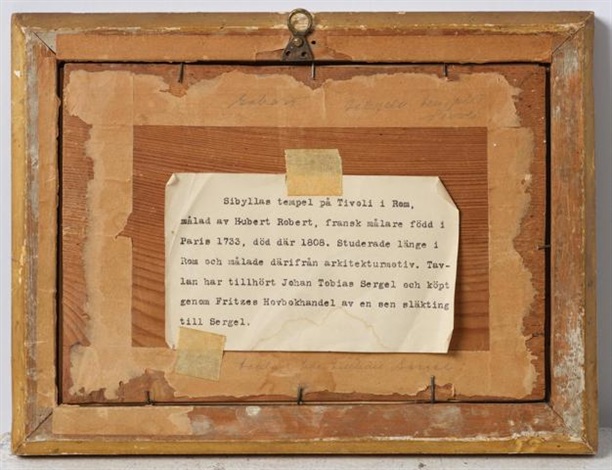 Sibyllas tempel på Tivoli i Rom,
målad av Hubert Robert, fransk målare född i
Paris 1733, död där 1808. Studerade länge i
Rom och målade därifrån arkitekturmotiv. Tav-
lan har tillhört Johan Tobias Sergel och köpt
genom Fritzes Hovbokhandel av en sen släkting
till Sergel.